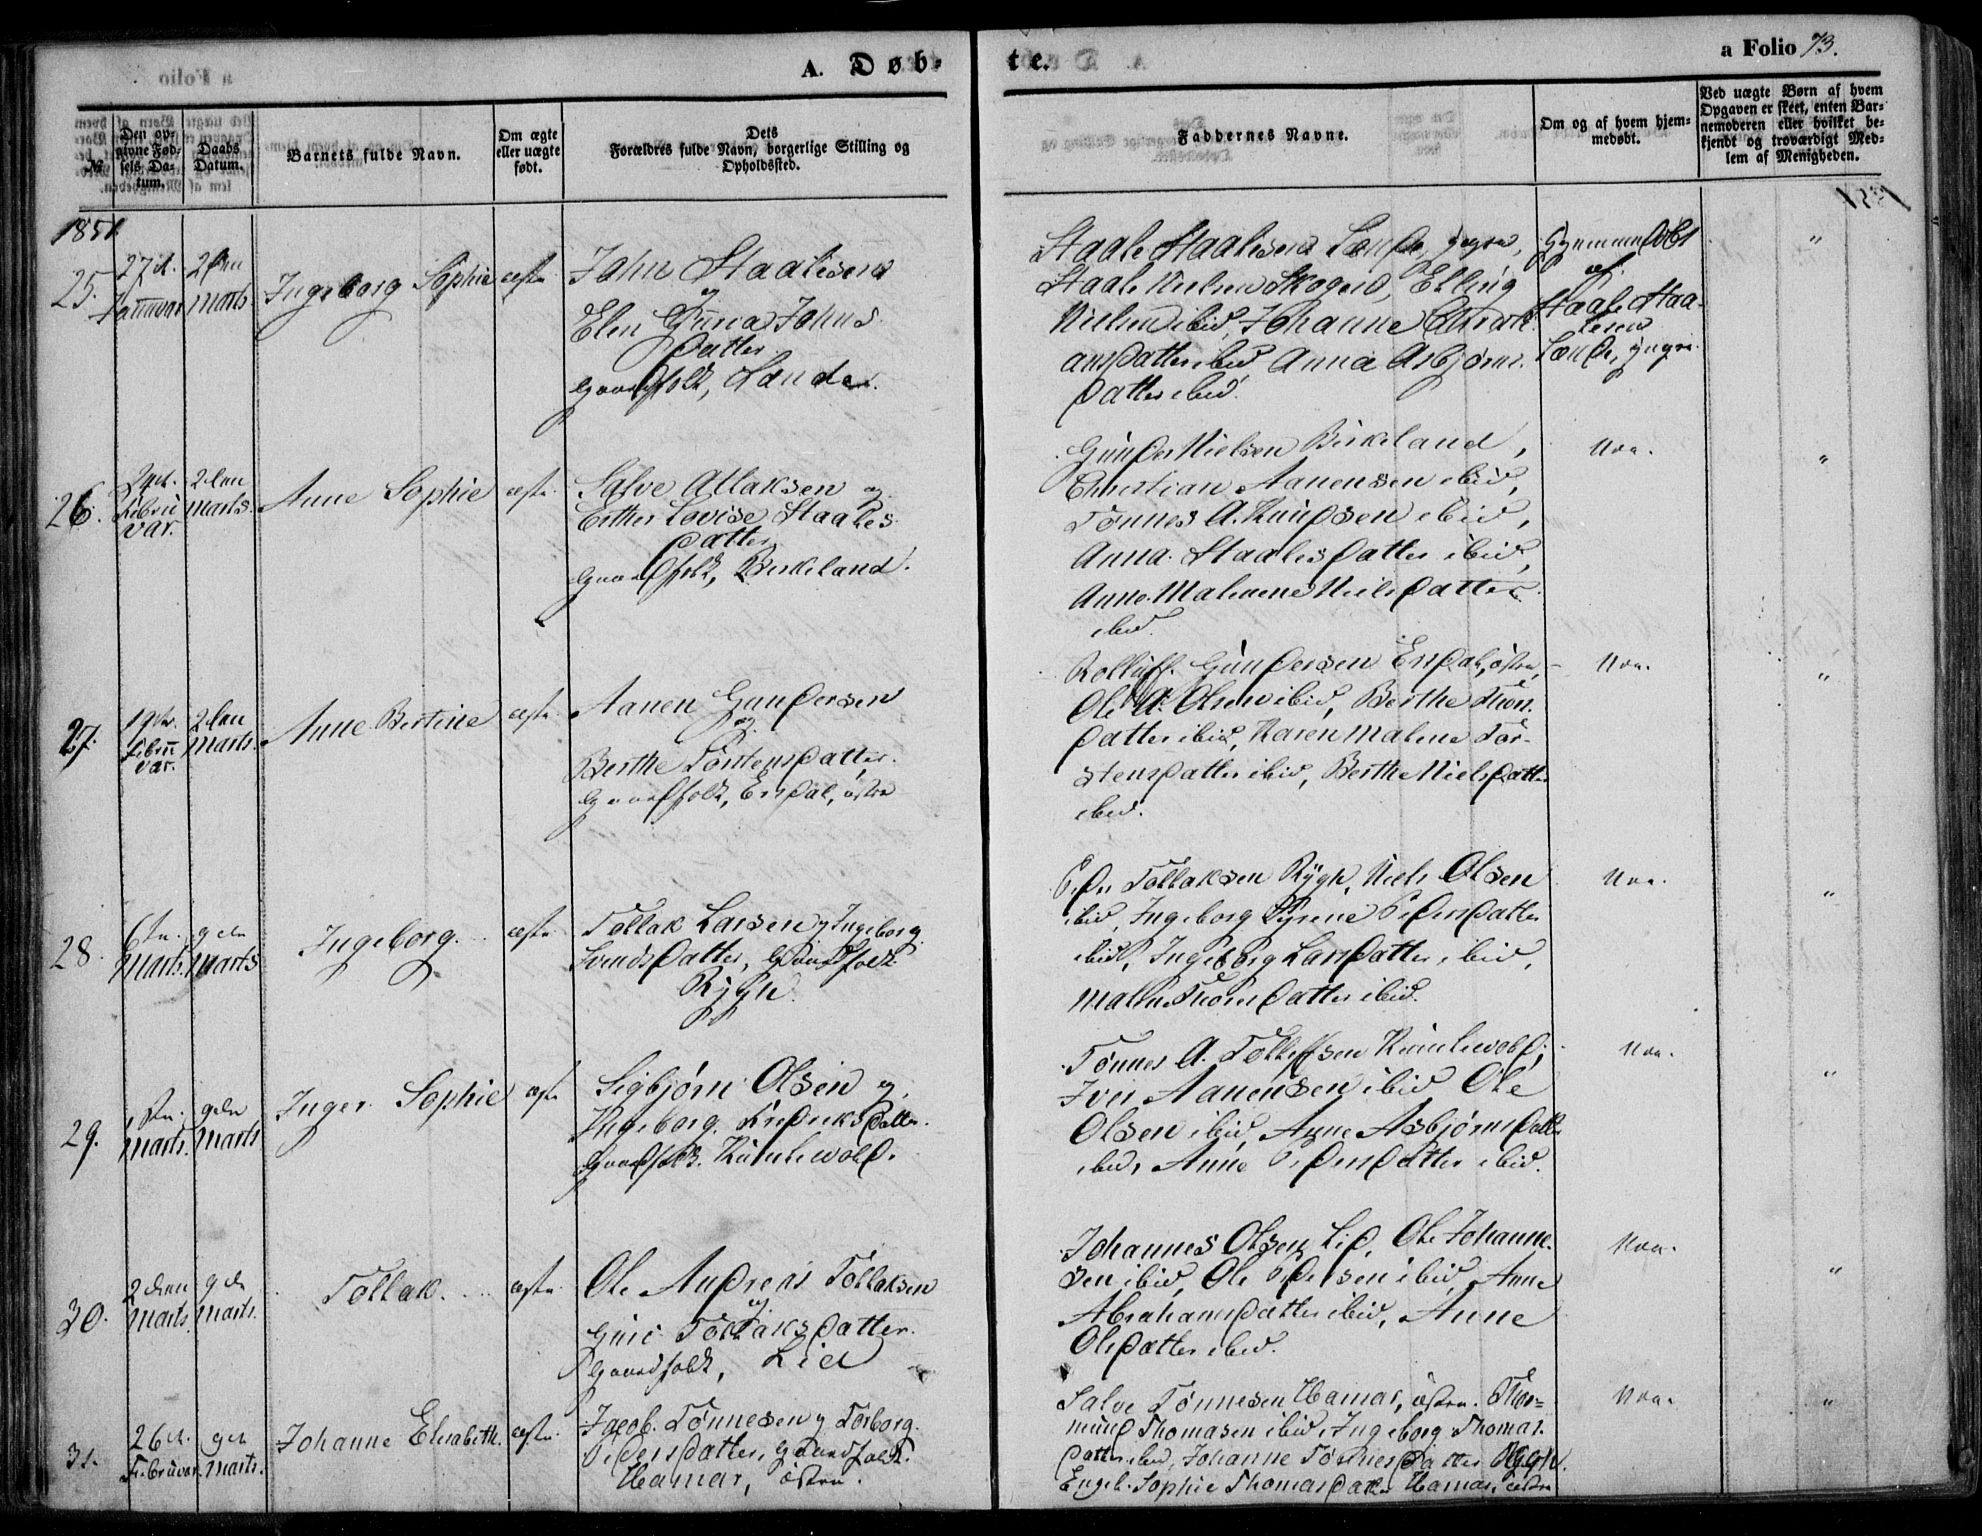 A. Døb-
te.
a Folio 73.
№
Den op-
givne Fød-
sels Da-
tum.
Daabs
Datum.
Barnets fulde Navn.
Om ægte
eller uægte
født.
Dets
Forældres fulde Navn, borgerlige Stilling og
Opholdssted.
Faddernes Navne.
Om og af hvem hjem-
medøbt.
Ved uægte Børn af hvem
Opgaven er skeet, enten Bar-
nemoderen eller hvilket be-
kjendt og troværdigt Med-
lem af Menigheden.
1851
25.
27de
Januar
2den
Marts
Ingeborg Sophie
ægte
John Staalesen
og
Elen Guria Johns
datter
Gaardfolk, Lande
Staale Staalesen Lande, yngre,
Staale Nielsen Skogen, Elling
Nielsen ibid, Johanne
datter ibid Anna Asbjørns
datter ibid.
Hjemmedøbt
af
Staale Staa-
lesen
Lande, yngre.
"
26.
Februar
var.
2den
Marts.
Anne Sophie
ægte
Salve Atlaksen og
Esther Lovise Staales
datter
Gaardfolk, Birkeland.
Gunder Nielsen Birkeland,
Christian Aanensen ibid,
Tønnes A. Knudsen ibid,
Anna Staalesdatter ibid,
Anne Malene Nielsdatter
ibid.
Nei.
"
27.
19de
Febru
var.
2den
Marts.
Anne Bertine
ægte
Aanen Gundersen
og
Berthe Torstensdatter.
Gaardfolk, Ersdal, østre
Rolluff Gundersen Ersdal, østre,
Ole A. Olsen ibid, Berthe
datter ibid, Karen Malene Tor-
stensdatter ibid, Berthe Nielsdatter
ibid.
Nei.
"
28.
6te
Marts.
9de
Marts
Ingeborg.
ægte
Tollak Larsen og Ingeborg
datter, Gaardfolk
Rygh.
Peder Tollaksen Rygh, Niels Olsen
ibid, Ingeborg Syrene Pedersdatter
ibid, Ingeborg Larsdatter ibid,
Malene datter ibid.
Nei.
"
29.
1ste
Marts.
9de
Marts
Inger Sophie
ægte
Sigbjørn Olsen og
Ingeborg Fredriksdatter.
Gaardfolk. Kumlevold.
Tønnes A. Kumlevold,
Iver Aanensen ibid Ole
Olsen ibid, Anne Asbjørnsdatter
ibid, Anne Pedersdatter ibid.
Nei.
"
30.
2den
Marts.
9de
Marts.
Tollak.
ægte
Ole Andreas Tollaksen
og
Guri Tollaksdatter.
Gaardfolk, Lid
Johannes Olsen Lid, Ole Johanne-
sen ibid, Ole Pedersen ibid, Anne
Abrahamsdatter ibid, Anne
Olsdatter ibid.
Nei.
"
31.
26de
Februar.
9de
Marts.
Johanne Elisabeth.
ægte
Jacob Tønnesen og Torborg
Pedersdatter, Gaardfolk.
Hamar, østre.
Salve Tønnesen Hamar, østre. Thor-
mund Thomasen ibid, Ingeborg Thomas-
datter ibid, Johanne Tønnesdatter
Engel Sophie Thomasdatter Hamar, østre
Nei.
"